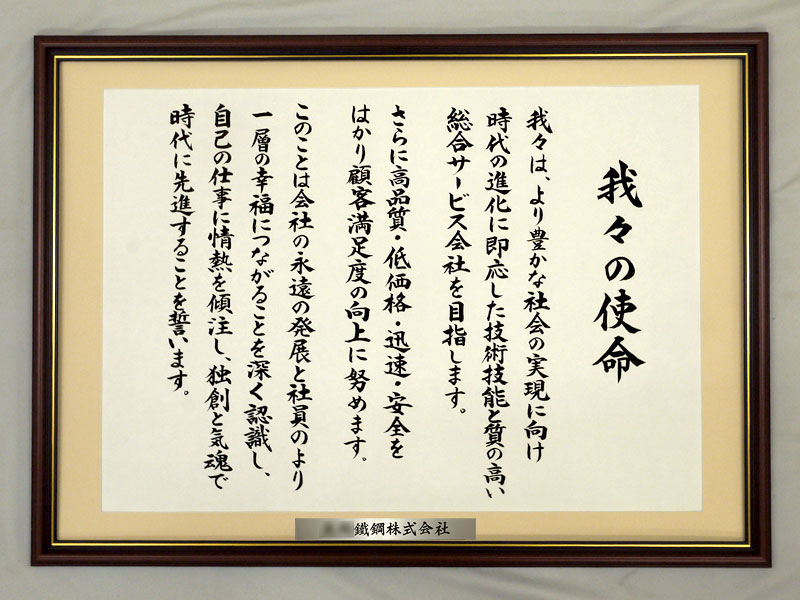 我々の使命
我々は、より豊かな社会の実現に向け
時代の進化に即応した技術技能と質の高い
総合サービス会社を目指します。
さらに高品質・低価格・迅速・安全を
はかり顧客満足度の向上に努めます。
このことは会社の永遠の発展と社員のより
一層の幸福につながることを深く認識し、
自己の仕事に情熱を傾注し、独創と気魂で
時代に先進することを誓います。
鐵鋼株式会社